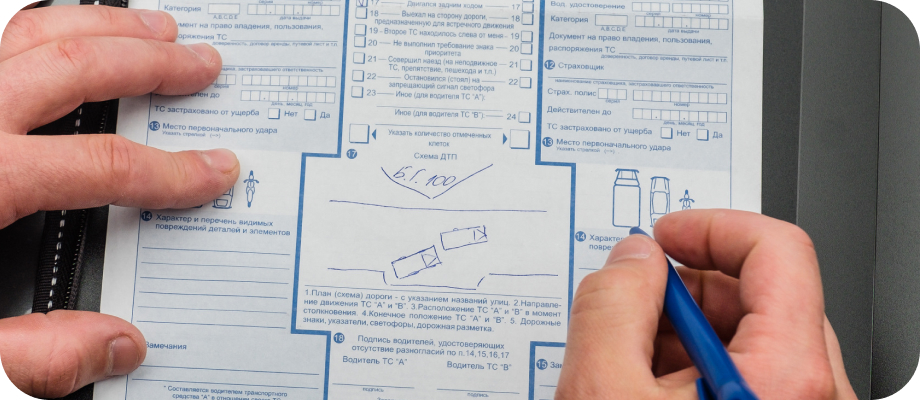 Категория
A B C D E
серия
номер
дата выдачи
Документ на право владения, пользования,
распоряжения ТС
доверенность, договор аренды, путевой лист и т.п.
ТС застраховано от ущерба
Нет
Да
13 Место первоначального удара
Указать стрелкой
14 Характер и перечень видимых
повреждений деталей и элементов
Замечания
* Составляется водителем транспортного
средства "А" в отношении своего ТС
17 Двигался задним ходом 17
18 Выехал на сторону дороги, 18
предназначенную для встречного движения
19 Второе ТС находилось слева от меня 19
20 Не выполнил требование знака 20
приоритета
21 Совершил наезд (на неподвижное 21
ТС, препятствие, пешехода и т.п.)
22 Остановился (стоял) на 22
запрещающий сигнал светофора
23 Иное (для водителя ТС "А")
Иное (для водителя ТС "В") 24
Указать количество отмеченных
клеток
17 Схема ДТП
100
1.План (схема) дороги - с указанием названий улиц. 2.Направле-
ние движения ТС "А" и "В". 3.Расположение ТС "А" и "В" в момент
столкновения. 4.Конечное положение ТС "А" и "В". 5. Дорожные
знаки, указатели, светофоры, дорожная разметка.
18 Подпись водителей, удостоверяющих
отсутствие разногласий по п.14,15,16,17
Водитель ТС "А"
Водитель ТС "В"
подпись
подпись
Вод. удостоверение
серия
номер
Категория
A B C D E
дата выдачи
Документ на право владения, пользования,
распоряжения ТС
доверенность, договор аренды, путевой лист и т.п.
12 Страховщик
наименование страховщика, застраховавшего ответственность
Страх. полис
серия
номер
Действителен до
день, месяц, год
ТС застраховано от ущерба
Нет
Да
13 Место первоначального удара
Указать стрелкой
14
15